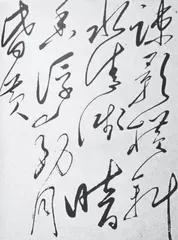 疎影横斜
水清浅暗
香浮動月
黄昏